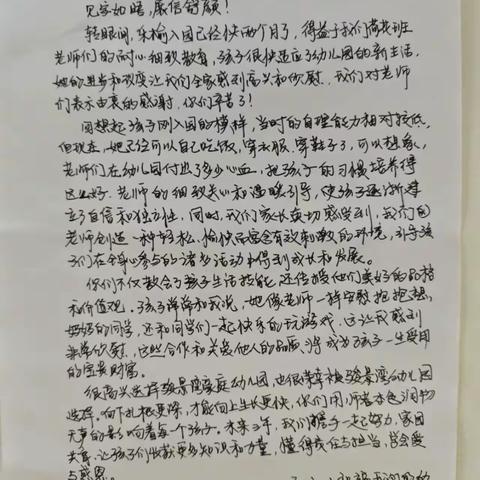 见字如晤,展信舒颜!
转眼间,朱榆入园已经快两个月了,得益于我们荷花班
老师们的耐心细致教育,孩子很快适应了幼儿园的新生活,
她的进步和改变让我们全家感到高兴和欣慰,我们对老师
们表示由衷的感谢,你们辛苦了!
回想起孩子刚入园的模样,当时的自理能力相对较低,
但现在,她已经可以自己吃饭,穿衣服,穿鞋子了,可以想象,
老师们在幼儿园付出了多少心血,把孩子的习惯培养得
这么好.老师的细致关心和温暖引导,使孩子逐渐建
立了自信和独立性,同时,我们家长真切感受到,我们的
老师创造一种轻松、愉快而富有效刺激的环境,引导孩
子们在全身心参与的诸多活动中得到成长和发展。
你们不仅教会了孩子生活技能,还传授他们美好的品格
和价值观。孩子常常和我说,她像老师一样安慰抱抱想
妈妈的同学,还和同学们一起快乐的玩游戏.这让我感到
非常欣慰,这些合作和关爱他人的品质将成为孩子一生受用
的宝贵财富。
很高兴选择骏景湾家庭幼儿园,也很荣幸被骏景湾幼儿园
选择.向下扎根更深,才能向上生长更快,你们用师者本色润物
无声的影响着每个孩子.未来三年,我们携手一起努力,家园
共育,让孩子们收获更多知识和力量,懂得责任与担当,学会爱
与感恩。